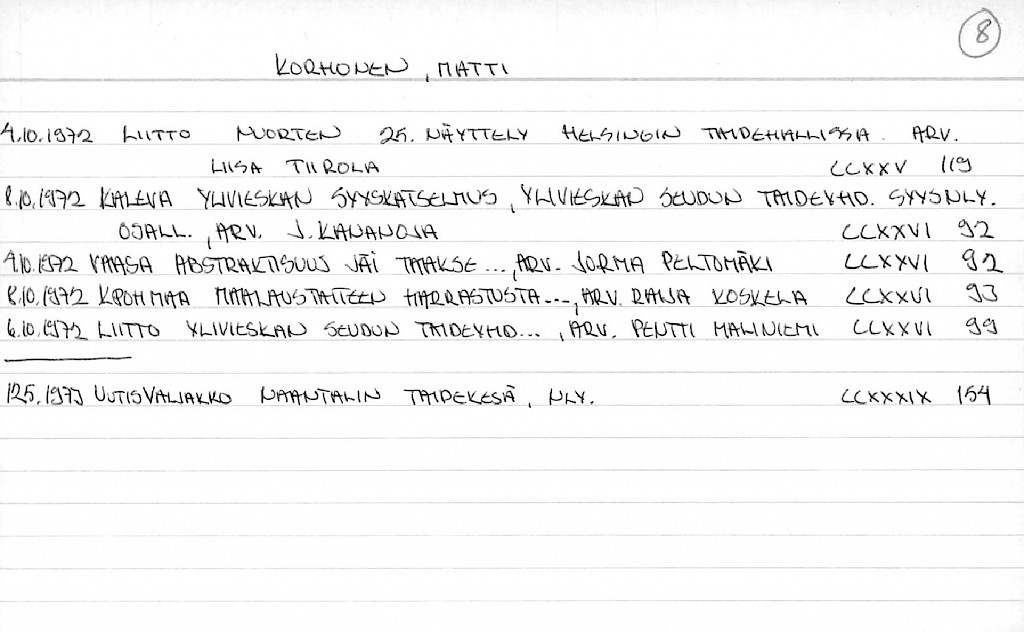 8
KORHONEN, MATTI
4.10.1972 LIITTO NUORTEN 25. NÄYTTELY HELSINGIN TAIDEHALLISSA. ARV.
LIISA TIIROLA CCXXV 119
8.10.1972 KALEVA YLIVIESKAN SYYSKATSELMUS, YLIVIESKAN SEUDUN TAIDEYHD. SYYSNLY.
OSALL., ARV. J. KANANOJA CCXXVI 92
4.10.1972 VAASA ABSTRAKTISUUS JÄI TAAKSE..., ARV. JORMA PELTOMÄKI CCXXVI 92
8.10.1972 KPOHMAA MAALAUSTAITEEN HARRASTUSTA..., ARV. RAIJA KOSKELA CCXXVI 93
6.10.1972 LIITTO YLIVIESKAN SEUDUN TAIDEYHD..., ARV. PENTTI MALINIEMI CCXXVI 99
12.5.1973 UUTISVALJAKKO NAANTALIN TAIDEKESÄ, NLY. CCXXXIX 154